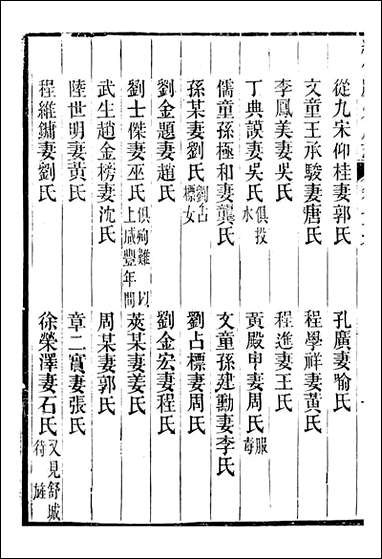 從九宋仰桂妻郭氏　孔廣妻喻氏
文童王承駿妻唐氏　程學祥妻黃氏
李鳳美妻吳氏　程進妻王氏
丁典謨妻吳氏俱投水　黃殿甲妻周氏服毒
儒童孫極和妻龔氏　文童孫建勳妻李氏
孫某妻劉氏劉占標女　劉占標妻周氏
劉金題妻趙氏　劉金宏妻程氏
劉士傑妻巫氏俱殉難以上咸豐年間　莢某妻姜氏
武生趙金榜妻沈氏　周某妻郭氏
陸世明妻黃氏　章二賓妻張氏
程維鏞妻劉氏　徐榮澤妻石氏又見舒城待旌